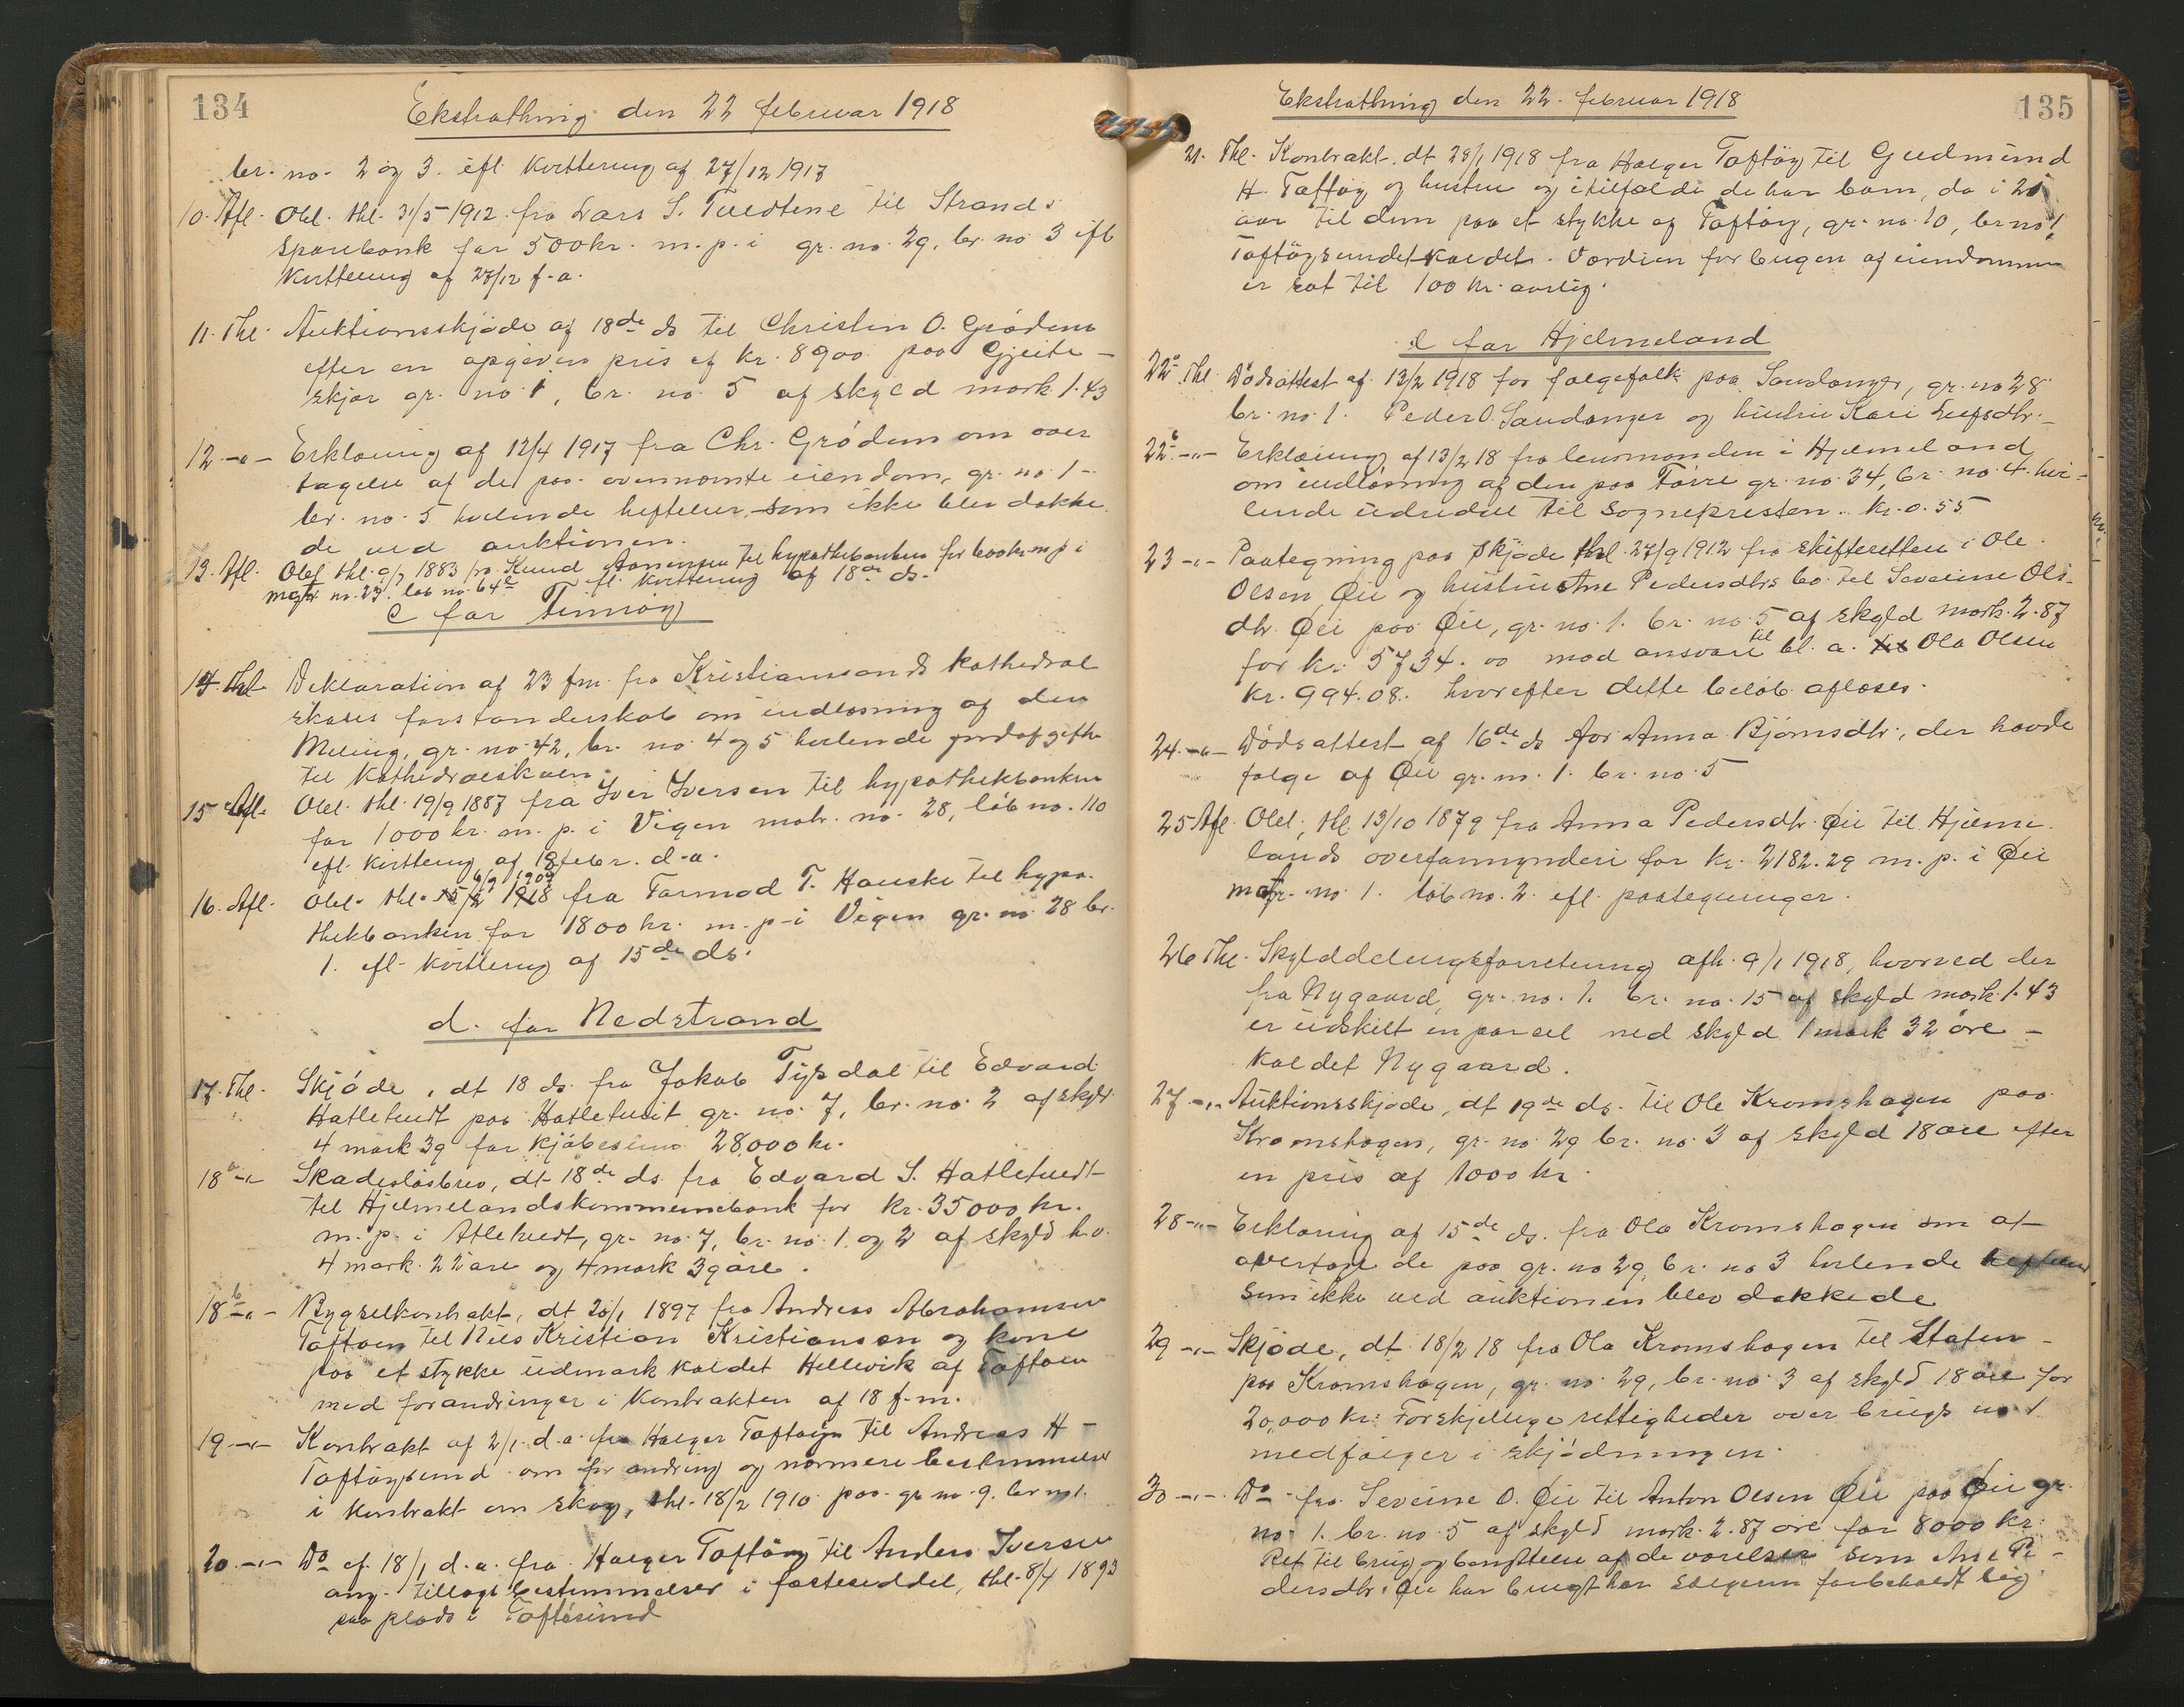 134
Ekstrathing den 22 februar 1918
br. no. 2 og 3. ifl kvittering af 27/12 1917
10. Afl. Obl. thl. 31/5 1912 fra Lars S. Tuedtene til Strands
sparebank for 500 kr. m. p. i gr. no. 29, br. no 3 ifl
kvittering af 27/12 f. a.
11. Thl. Auktionsskjøde af 18de ds til Christen O. Grødem
efter en opgiven pris af kr. 8900 paa Gjeite-
skjær gr. no 1, br. no. 5 af skyld mark 1.43
12 -"- Erklæring af 12/4 1917 fra Chr. Grødem om over
tagelse af de paa ovennævnte eiendom, gr. no. 1-
br. no. 5 hvilende heftelser, som ikke blev dække
de ved auktionen.
13. Afl. Obl. thl. 9/7 1883 fra Knud Aanensen til hypothekbanken for 600 kr m p i
matr no. 23. løb no. 64 ifl kvittering af 18de ds.
c for Finnøy
14. thl. Deklaration af 23 f.m. fra Kristianssands kathedral
skoles forstanderskab om indløsning af den
Meling, gr. no. 42, br. no 4 og 5 hvilende jordafgift
til kathedralskolen.
15 Afl. Obl. thl. 19/9 1887 fra Iver Iversen til hypothekbanken
for 1000 kr. m. p. i Vigen matr. no. 28, løb no. 110
ifl. kvittering af 18 febr. d. a.
16. Afl. Obl. thl. 6/9 1909 fra Tarmod T. Hauske til hypo-
thekbanken for 1800 kr. m. p. i Vigen gr. no. 28 br.
1. ifl. kvittering af 15de ds.
d. for Nedstrand
17. Thl. Skjøde, dt 18 ds. fra Jakob Tysdal til Edvard
Hatletvedt paa Hatletvedt gr. no. 7, br. no. 2 af skyld
4 mark 39 for kjøbesum 28,000 kr.
18a -"- Skadesløsbrev, dt 18de ds. fra Edvard S. Hatletvedt
til Hjelmelandskommunebank for kr. 35000 kr.
m. p. i Atletvedt, gr. no. 7, br. no. 1 og 2 af skyld h.v.
4 mark 22 øre og 4 mark 39 øre.
18b -"- Bygselkontrakt, dt 20/1 1897 fra Andreas Abrahamsen
Toftøen til Nils Kristian Kristiansen og kone
paa et stykke udmark kaldet Hellevik af Toftøen
med forandringer i kontrakten af 18 f. m.
19 -"- Kontrakt af 2/1 d. a. fra Holger Toftøy til Andreas H
Toftøysund om forandring og nærmere bestemmelser
i kontrakt om skog, thl. 18/2 1910 paa gr no. 9. br no 1.
20. -"- Do af 18/1 d. a. fra Holger Toftøy til Anders Iversen
ang. tillægsbestemmelser i fæsteseddel, thl. 8/4 1893
paa plads i Toftøsund
Ekstrathing den 22. februar 1918
135
21. Thl. Kontrakt. dt 28/1 1918 fra Holger Toftøy til Gudmund
H. Toftøy og hustru og i tilfælde de har barn, da i 20
aar til dem paa et stykke af Toftøy, gr. no. 10, br no 1,
Toftøysundet kaldet. Værdien for brugen af eiendommen
er sat til 100 kr. aarlig.
e for Hjelmeland
22a Thl. Dødsattest af 13/2 1918 for folgefolk paa Sandanger, gr. no 28
br. no 1. Peder O. Sandanger og hustru Kari Leifsdtr.
22b -"- Erklæring af 13/2 18 fra lensmanden i Hjelmeland
om indløsning af den paa Førre gr. no. 34, br. no. 4. hvi-
lende udredsel til Sognepresten. kr. 0.55
23 -"- Paategning paa Skjøde thl. 27/9 1912 fra skifteretten i Ole
Olsen Øie og hustru Ane Pedersdtrs bo til Severine Ols-
dtr. Øie paa Øie, gr. no. 1. br. no. 5 af skyld mark 2.87
for kr. 5734. 00 mod ansvar til bl. a. Ola Olsen
kr. 994.08. hvorefter dette beløb aflæses.
24. -"- Dødsattest af 16de ds for Anna Bjørnsdtr., der havde
folge af Øie gr. no. 1. br. no. 5
25 Afl. Obl., thl 13/10 1879 fra Anna Pedersdtr. Øie til Hjelme-
lands overformynderi for kr. 2182.29 m. p. i Øie
matr. no. 1. løb no. 2. ifl. paategninger.
26 Thl. Skylddelingsforretning afh. 9/1 1918, hvorved der
fra Nygaard, gr. no. 1. br. no. 15 af skyld mark 1.43
er udskilt en parsel med skyld 1 mark 32 øre -
kaldet Nygaard.
27 -"- Auktionsskjøde, dt 19de ds. til Ole Kromshagen paa
Kromshagen, gr. no. 29 br. no. 3 af skyld 18 øre efter
en pris af 1000 kr.
28 -"- Erklæring af 15de ds. fra Ola Kromshagen om at
overtage de paa gr. no 29, br. no 3 hvilende heftelser,
som ikke ved auktionen blev dækkede
29 -"- Skjøde, dt. 18/2 18 fra Ola Kromshagen til Staten
paa Kromshagen, gr. no. 29, br. no. 3 af skyld 18 øre for
20,000 kr. Forskjellige rettigheder over brugs no 1
medfølger i skjødningen.
30 -"- Do fra Severine O. Øie til Anton Olsen Øie paa Øie gr.
no. 1. br. no. 5 af skyld mark. 2.87 øre for 8000 kr.
Ret til brug og benyttelse af de værelser som Ane Pe-
dersdtr. Øie har brugt har sælgeren forbeholdt sig